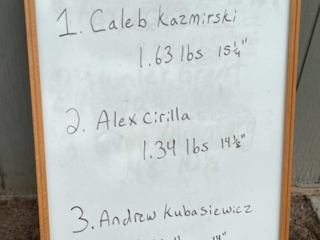 1. Caleb Kazmirski
1.63 lbs 15 1/4"
2. Alex Cirilla
1.34 lbs 14 1/2"
3. Andrew Kubasiewicz